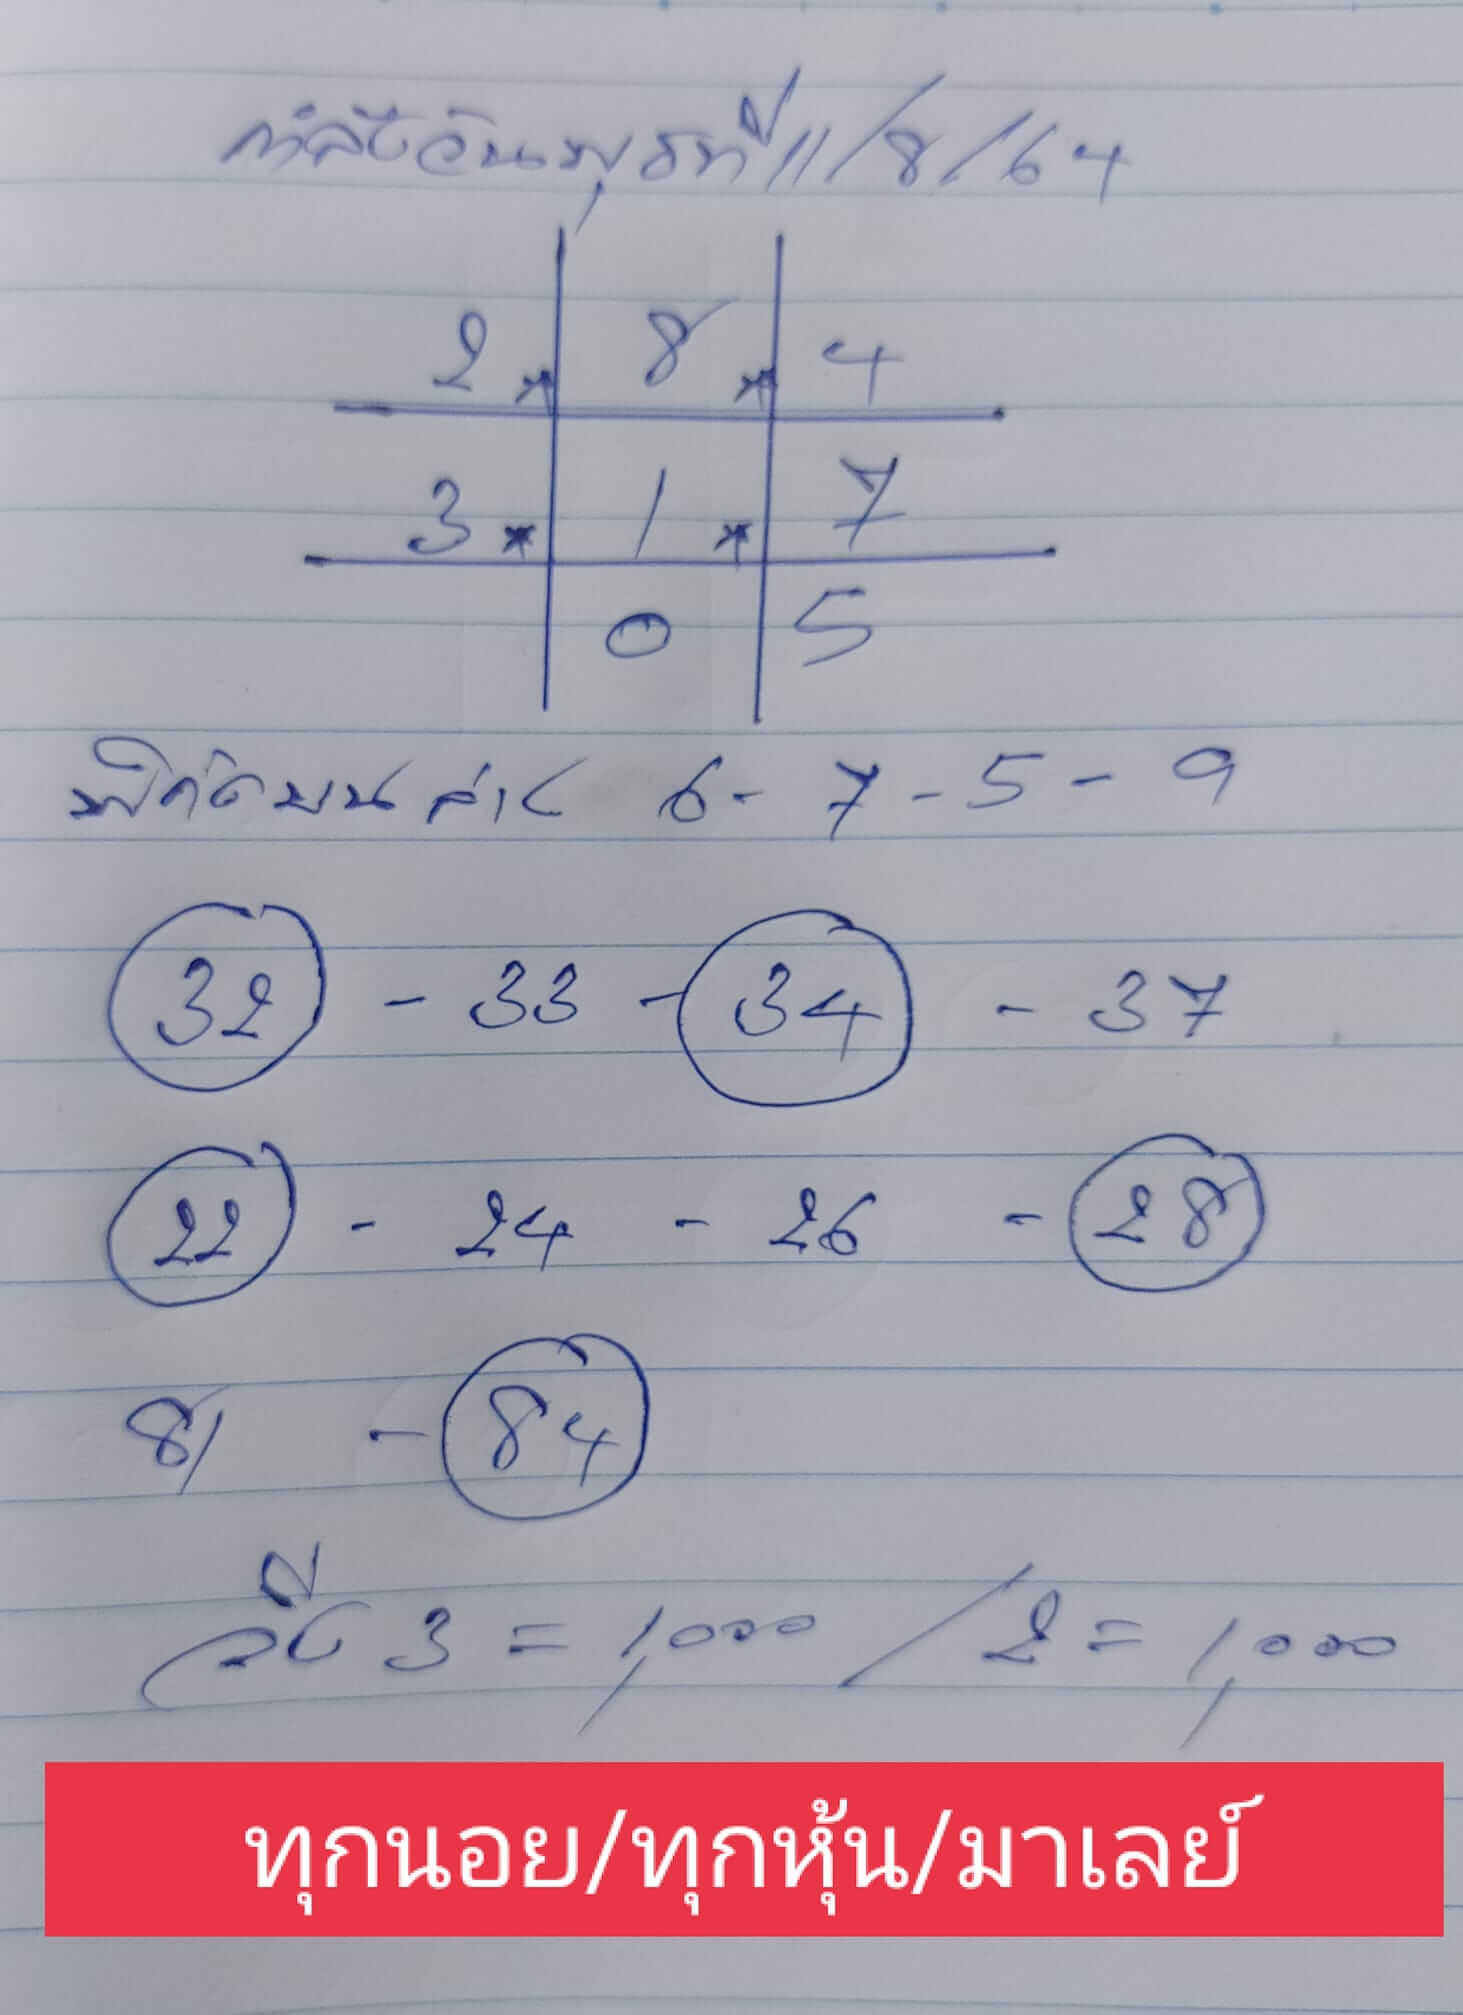 กำลังวันพุธที่ 11/8/64
2 * 8 * 4
3 * 1 * 7
0 5
พิกัดบนล่าง 6 - 7 - 5 - 9
32 - 33 - 34 - 37
22 - 24 - 26 - 28
81 - 84
3 = 1,000 / 2 = 1,000
ทุกนอย/ทุกหุ้น/มาเลย์